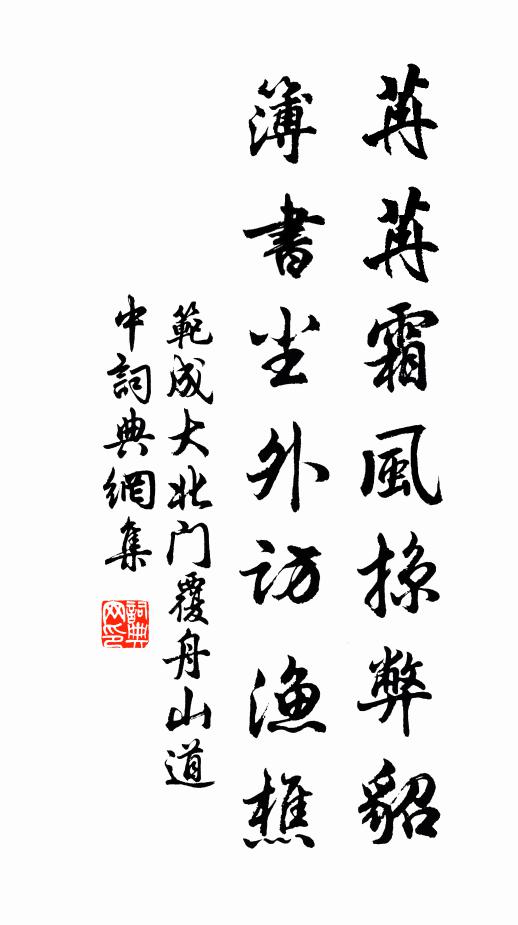 苒苒霜風掠弊貂
簿書尘外訪漁樵
範成大北门覆舟山道
中詞典網集
詞典网印